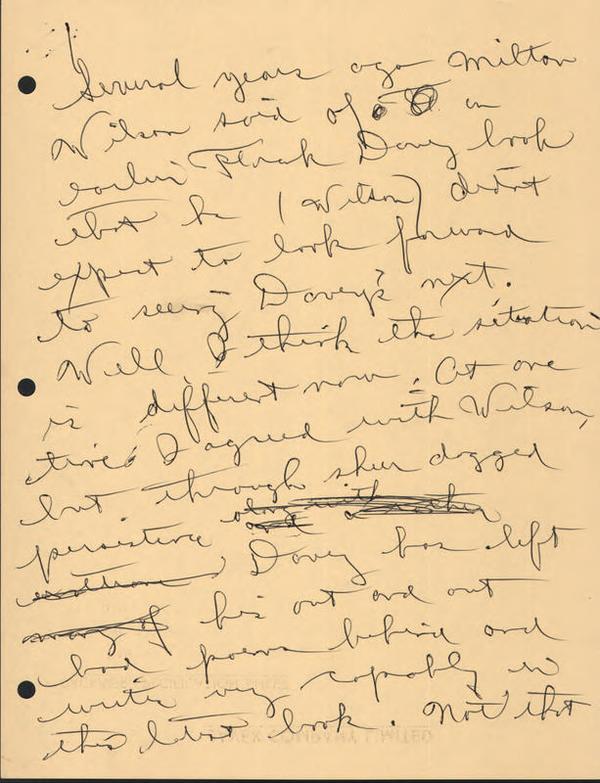 Several years ago Milton
Wilson said of an
earlier Frank Davey book
that he (Wilson) didnt
expect to look forward
to seeing Davey's next.
Well, I think the situation
is different now. At one
time I agreed with Wilson,
but through sheer dogged
persistence along with another
and
, Davey has left
many of his out and out
bad poems behind and
writes very capably in
this last book. Not that